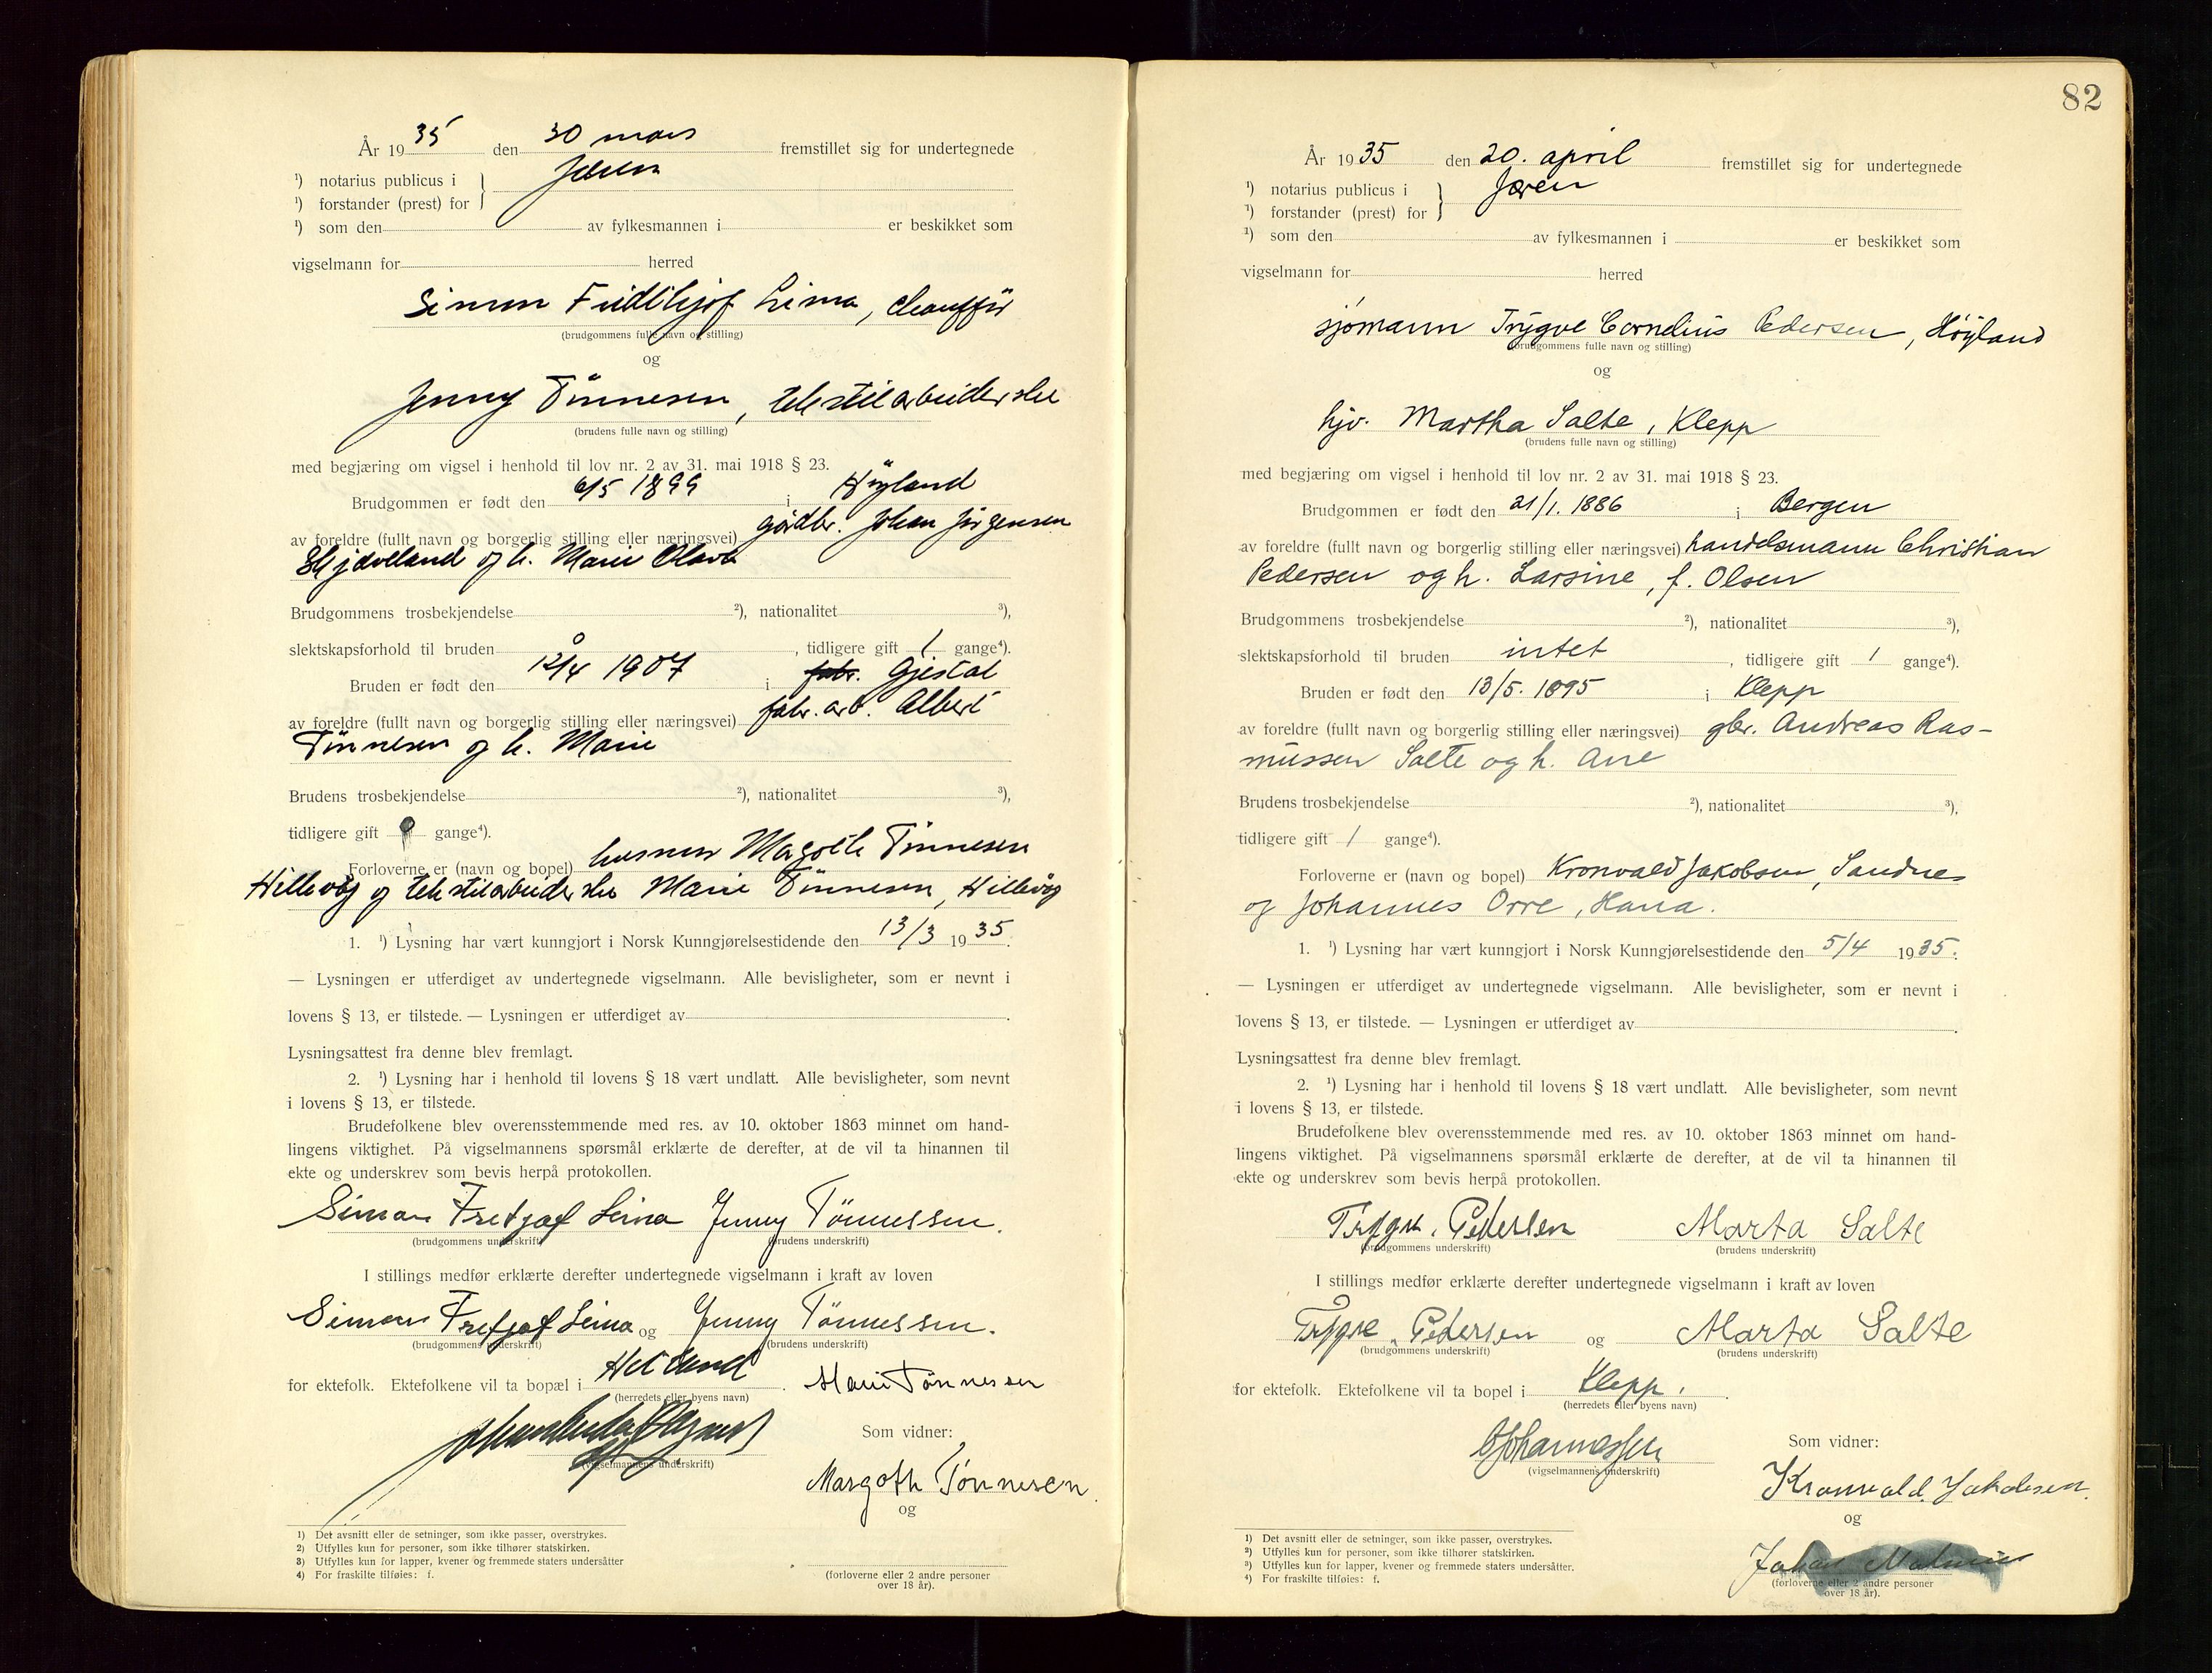 År 1935 den 30 mars fremstillet sig for undertegnede
¹) notarius publicus i } Jæren
¹) forstander (prest) for
¹) som den av fylkesmannen i er beskikket som
vigselmann for herred
Simon Fridthjof Lima, chauffør
(brudgommens fulle navn og stilling)
og
Jenny Tønnesen, tekstilarbeiderske
(brudens fulle navn og stilling)
med begjæring om vigsel i henhold til lov nr. 2 av 31. mai 1918 § 23.
Brudgommen er født den 6/5 1899 i Høyland
av foreldre (fullt navn og borgerlig stilling eller næringsvei) gårdbr. Johan Jørgensen
Skjævelland og h. Marie
Brudgommens trosbekjendelse ²), nationalitet ³),
slektskapsforhold til bruden 0, tidligere gift 1 gange⁴).
Bruden er født den 12/4 1907 i fabr. Gjestal
av foreldre (fullt navn og borgerlig stilling eller næringsvei) fabr. arb. Albert
Tønnesen og h. Marie
Brudens trosbekjendelse ²), nationalitet ³),
tidligere gift gange⁴).
Forloverne er (navn og bopel) husmor Margoth Tønnesen
Hillevåg og tekstilarbeiderske Marie Tønnesen, Hillevåg
1. ¹) Lysning har vært kunngjort i Norsk Kunngjørelsestidende den 13/3 1935.
— Lysningen er utferdiget av undertegnede vigselmann. Alle bevisligheter, som er nevnt i
lovens § 13, er tilstede. — Lysningen er utferdiget av .
Lysningsattest fra denne blev fremlagt.
2. ¹) Lysning har i henhold til lovens § 18 vært undlatt. Alle bevisligheter, som nevnt
i lovens § 13, er tilstede.
Brudefolkene blev overensstemmende med res. av 10. oktober 1863 minnet om hand-
lingens viktighet. På vigselmannens spørsmål erklærte de derefter, at de vil ta hinannen til
ekte og underskrev som bevis herpå protokollen.
Simon Fretjof Lima Jenny Tönnessen.
(brudgommens underskrift) (brudens underskrift)
I stillings medfør erklærte derefter undertegnede vigselmann i kraft av loven
Simon Fretjof Lima og Jenny Tönnessen.
(brudgommens underskrift) (brudens underskrift)
for ektefolk. Ektefolkene vil ta bopæl i Hetland. Marie Tönnessen
(herredets eller byens navn)
Som vidner:
(vigselmannens underskrift)
Margoth Tönnesen
og
1) Det avsnitt eller de setninger, som ikke passer, overstrykes.
2) Utfylles kun for personer, som ikke tilhører statskirken.
3) Utfylles kun for lapper, kvener og fremmede staters undersåtter
4) For fraskilte tilføies: f.
(forloverne eller 2 andre personer
over 18 år).
82
År 1935 den 20. april fremstillet sig for undertegnede
¹) notarius publicus i } Jæren
¹) forstander (prest) for
¹) som den av fylkesmannen i er beskikket som
vigselmann for herred
sjømann Trygve Cornelius Pedersen, Høyland
(brudgommens fulle navn og stilling)
og
hjv. Martha Salte, Klepp
(brudens fulle navn og stilling)
med begjæring om vigsel i henhold til lov nr. 2 av 31. mai 1918 § 23.
Brudgommen er født den 21/1. 1886 i Bergen
av foreldre (fullt navn og borgerlig stilling eller næringsvei) handelsmann Christian
Pedersen og h. Larsine, f. Olsen
Brudgommens trosbekjendelse ²), nationalitet ³),
slektskapsforhold til bruden intet, tidligere gift 1 gange⁴).
Bruden er født den 13/5. 1895 i Klepp
av foreldre (fullt navn og borgerlig stilling eller næringsvei) gbr. Andreas Ras-
mussen Salte og h. Ane
Brudens trosbekjendelse ²), nationalitet ³),
tidligere gift 1 gange⁴).
Forloverne er (navn og bopel) Kronvald Jakobsen, Sandnes
og Johannes Orre, Hana.
1. ¹) Lysning har vært kunngjort i Norsk Kunngjørelsestidende den 5/4 1935.
— Lysningen er utferdiget av undertegnede vigselmann. Alle bevisligheter, som er nevnt i
lovens § 13, er tilstede. — Lysningen er utferdiget av .
Lysningsattest fra denne blev fremlagt.
2. ¹) Lysning har i henhold til lovens § 18 vært undlatt. Alle bevisligheter, som nevnt
i lovens § 13, er tilstede.
Brudefolkene blev overensstemmende med res. av 10. oktober 1863 minnet om hand-
lingens viktighet. På vigselmannens spørsmål erklærte de derefter, at de vil ta hinannen til
ekte og underskrev som bevis herpå protokollen.
Trygve. Pedersen Marta Salte
(brudgommens underskrift) (brudens underskrift)
I stillings medfør erklærte derefter undertegnede vigselmann i kraft av loven
Trygve. Pedersen og Marta Salte
(brudgommens underskrift) (brudens underskrift)
for ektefolk. Ektefolkene vil ta bopel i Klepp.
(herredets eller byens navn)
Johannessen
Som vidner:
(vigselmannens underskrift)
Kronvald Jakobsen.
og
Johan
1) Det avsnitt eller de setninger, som ikke passer, overstrykes.
²) Utfylles kun for personer, som ikke tilhører statskirken.
³) Utfylles kun for lapper, kvener og fremmede staters undersåtter.
⁴) For fraskilte tilføies: f.
(forloverne eller 2 andre personer
over 18 år).